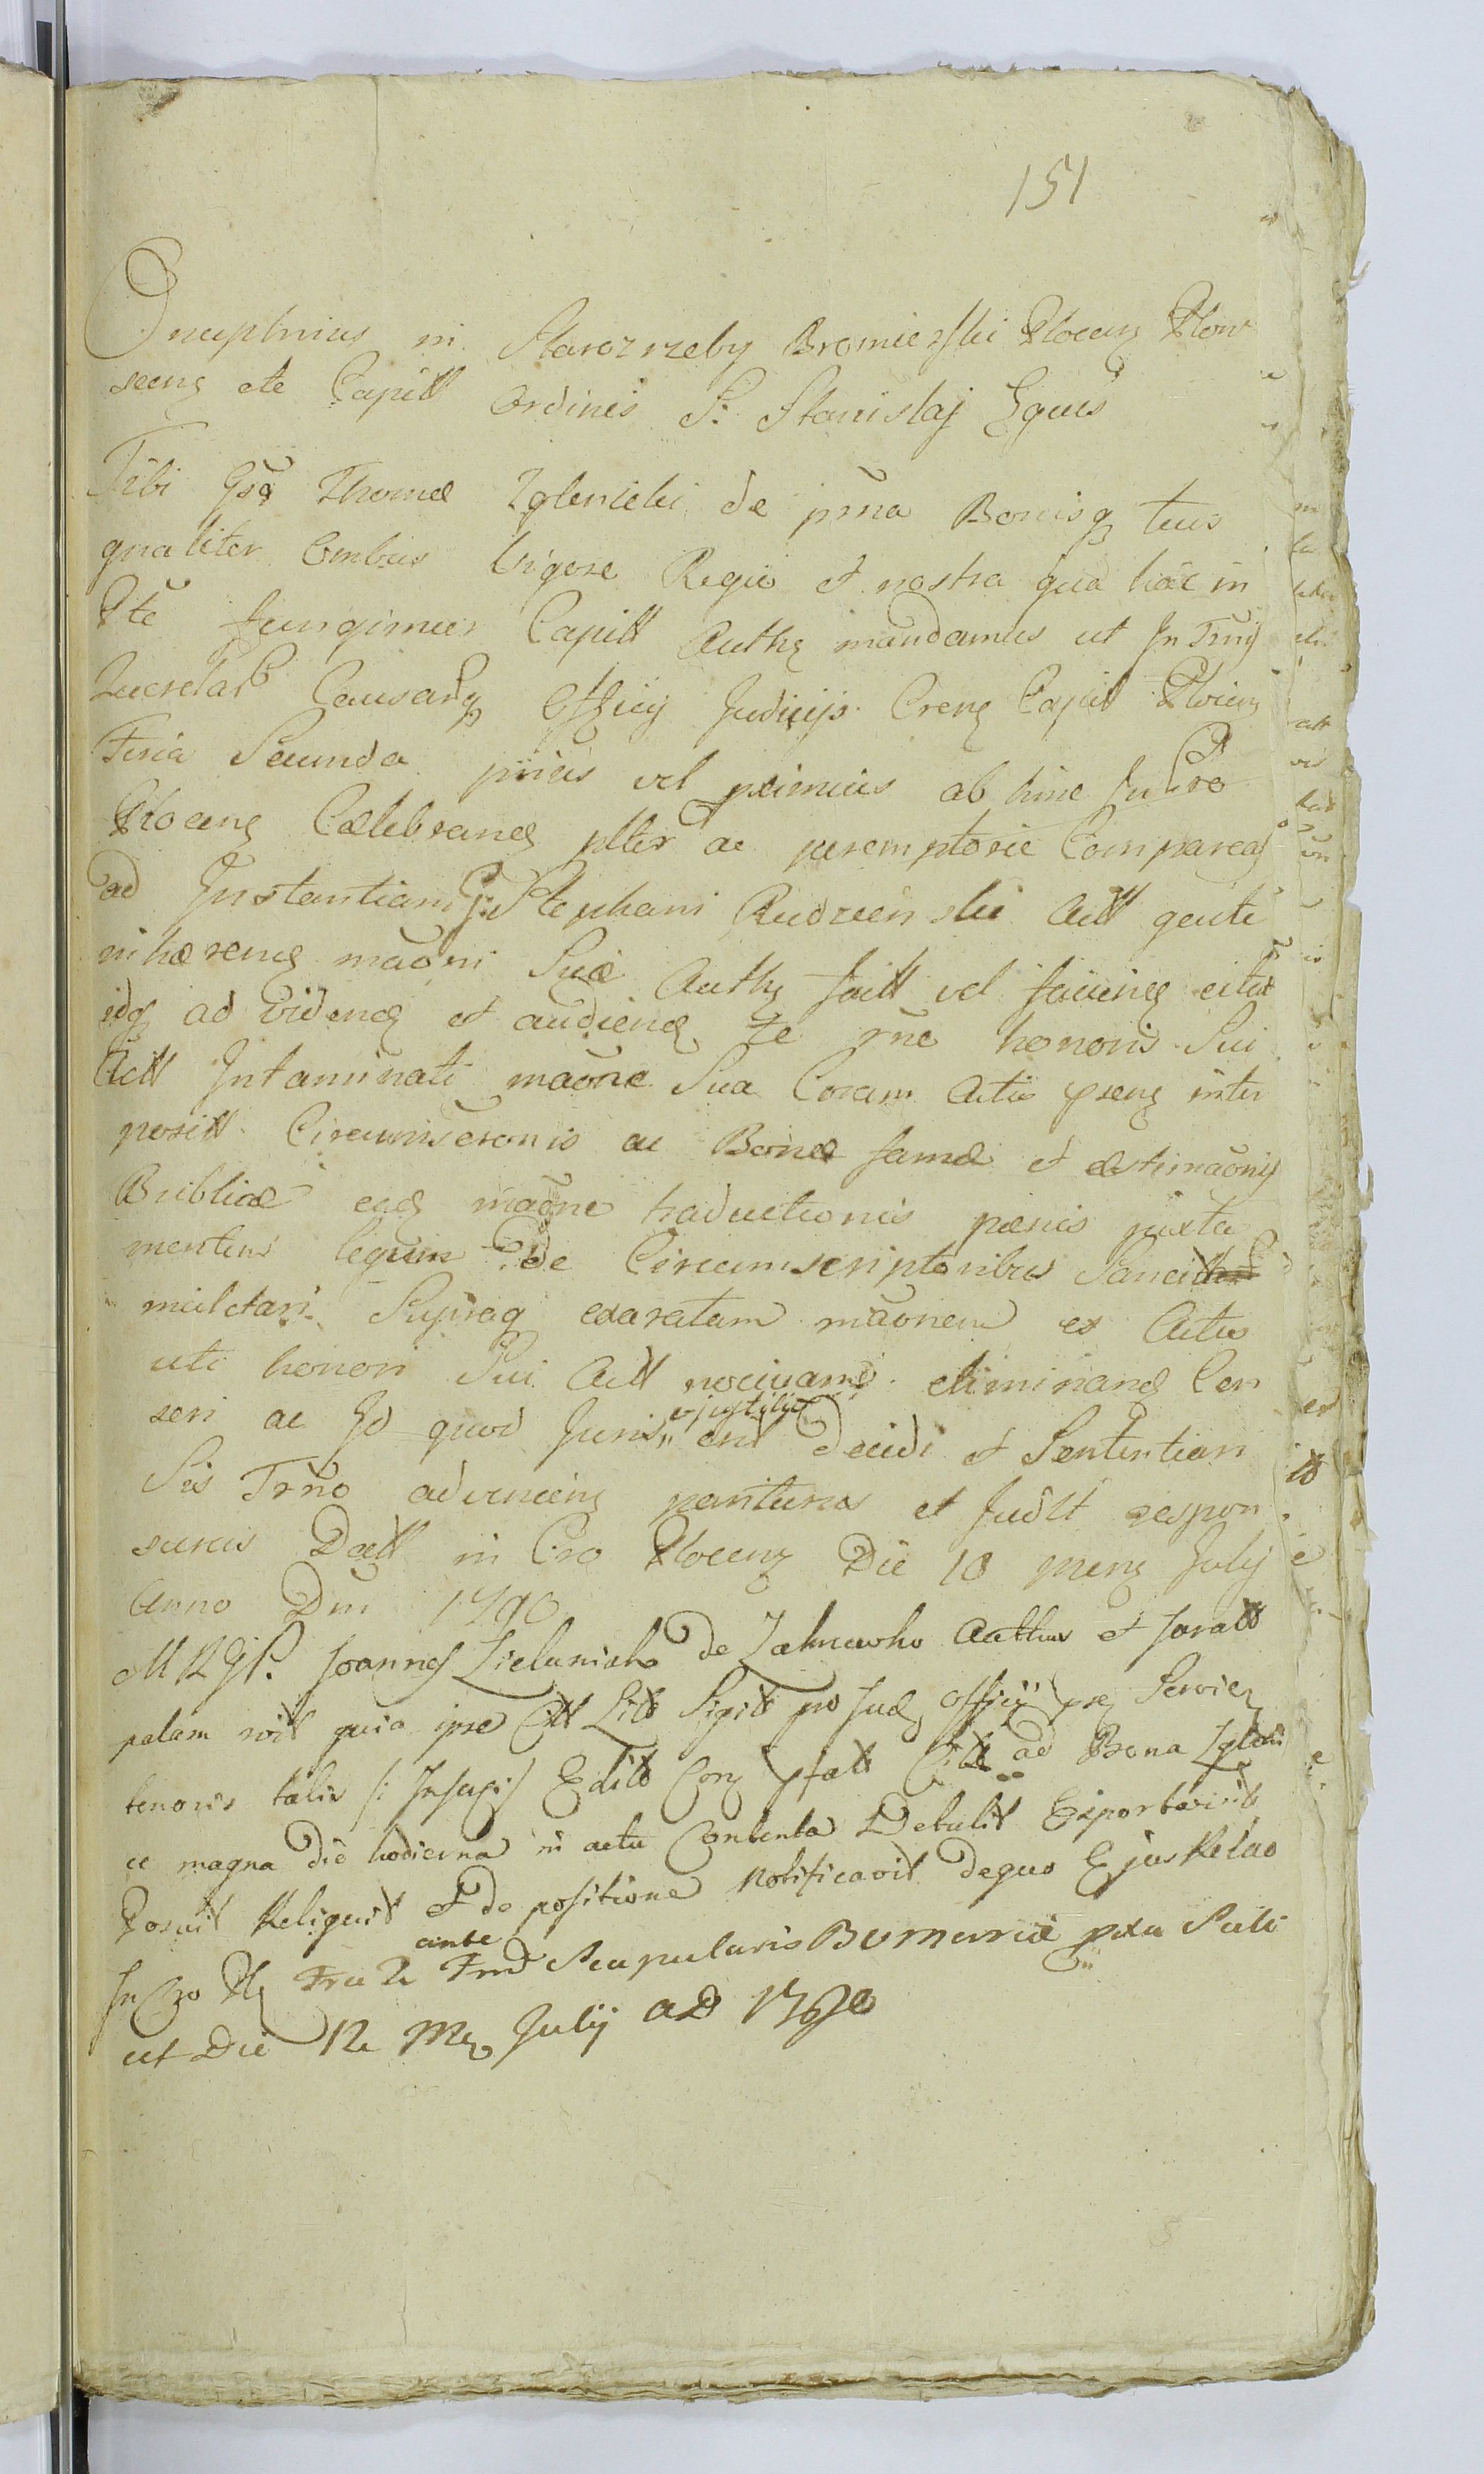 151
Onuphrius in Starozrzeby Bromierski Plocens Plon
scens etc Capitt Ordinis S. Stanislaj Eques
Tibi Gso Thomæ Zglenicki de psna Bonisq tuis
qualiter Ombus Vigore Regia et nostra qua hac in
Pte fungimur Capitt Authe mandamus ut In Trnis
Querelar Causarq Officij Judicijs Crens Capit Plocens
Feria Secunda prius vel primius ab hinc In Cro
Plocens Celebrand pltter ac peremptorie Compareas
ad Instantiam G. Stephani Rudzienski Actt qente
inhærend maoni Suæ Auths fact vel faciend citat
idq ad Videnda et audiend Te rne honoris Sui
Actt Intaminati maone Sua Coram Actis psens inter
positt Circumscronis ac Bonæ famæ et æstimaonis
Publicæ ead maone traductionis pænis juxta
mentem legum de Circumscriptoribus Sancit
mulctari Supraq exaratam maonem ex Actis
uti honori Sui Actt nocivam eliminand Cen
seri ac Id quod Juris et justitiæ erit decidi et Sententiari
Sis Trno adveniens pariturus et Judlt respon
surus Datt in Cro Plocens Die 10 mens July
Anno Dni 1790
M R G P. Joannes Zieluniak de Zakrzewko Authus et Juratt
palam rvit quia ipse Citt Litt Sigitt pro Jud Officij pse Servien
tenoris talis /: Insupis/ Edits Con pfatt Citt ad Bona Zgleni
ce magna die hodierna in actu Contenta Detulit Exportavit
Posuit Reliquit et de positione Notificavit dequo Ejus Relao
In Cro Pl Fria 2 ante Fm Scapularis B V Mariæ pxa Sub
ut Die 12 Ms July AD 1790